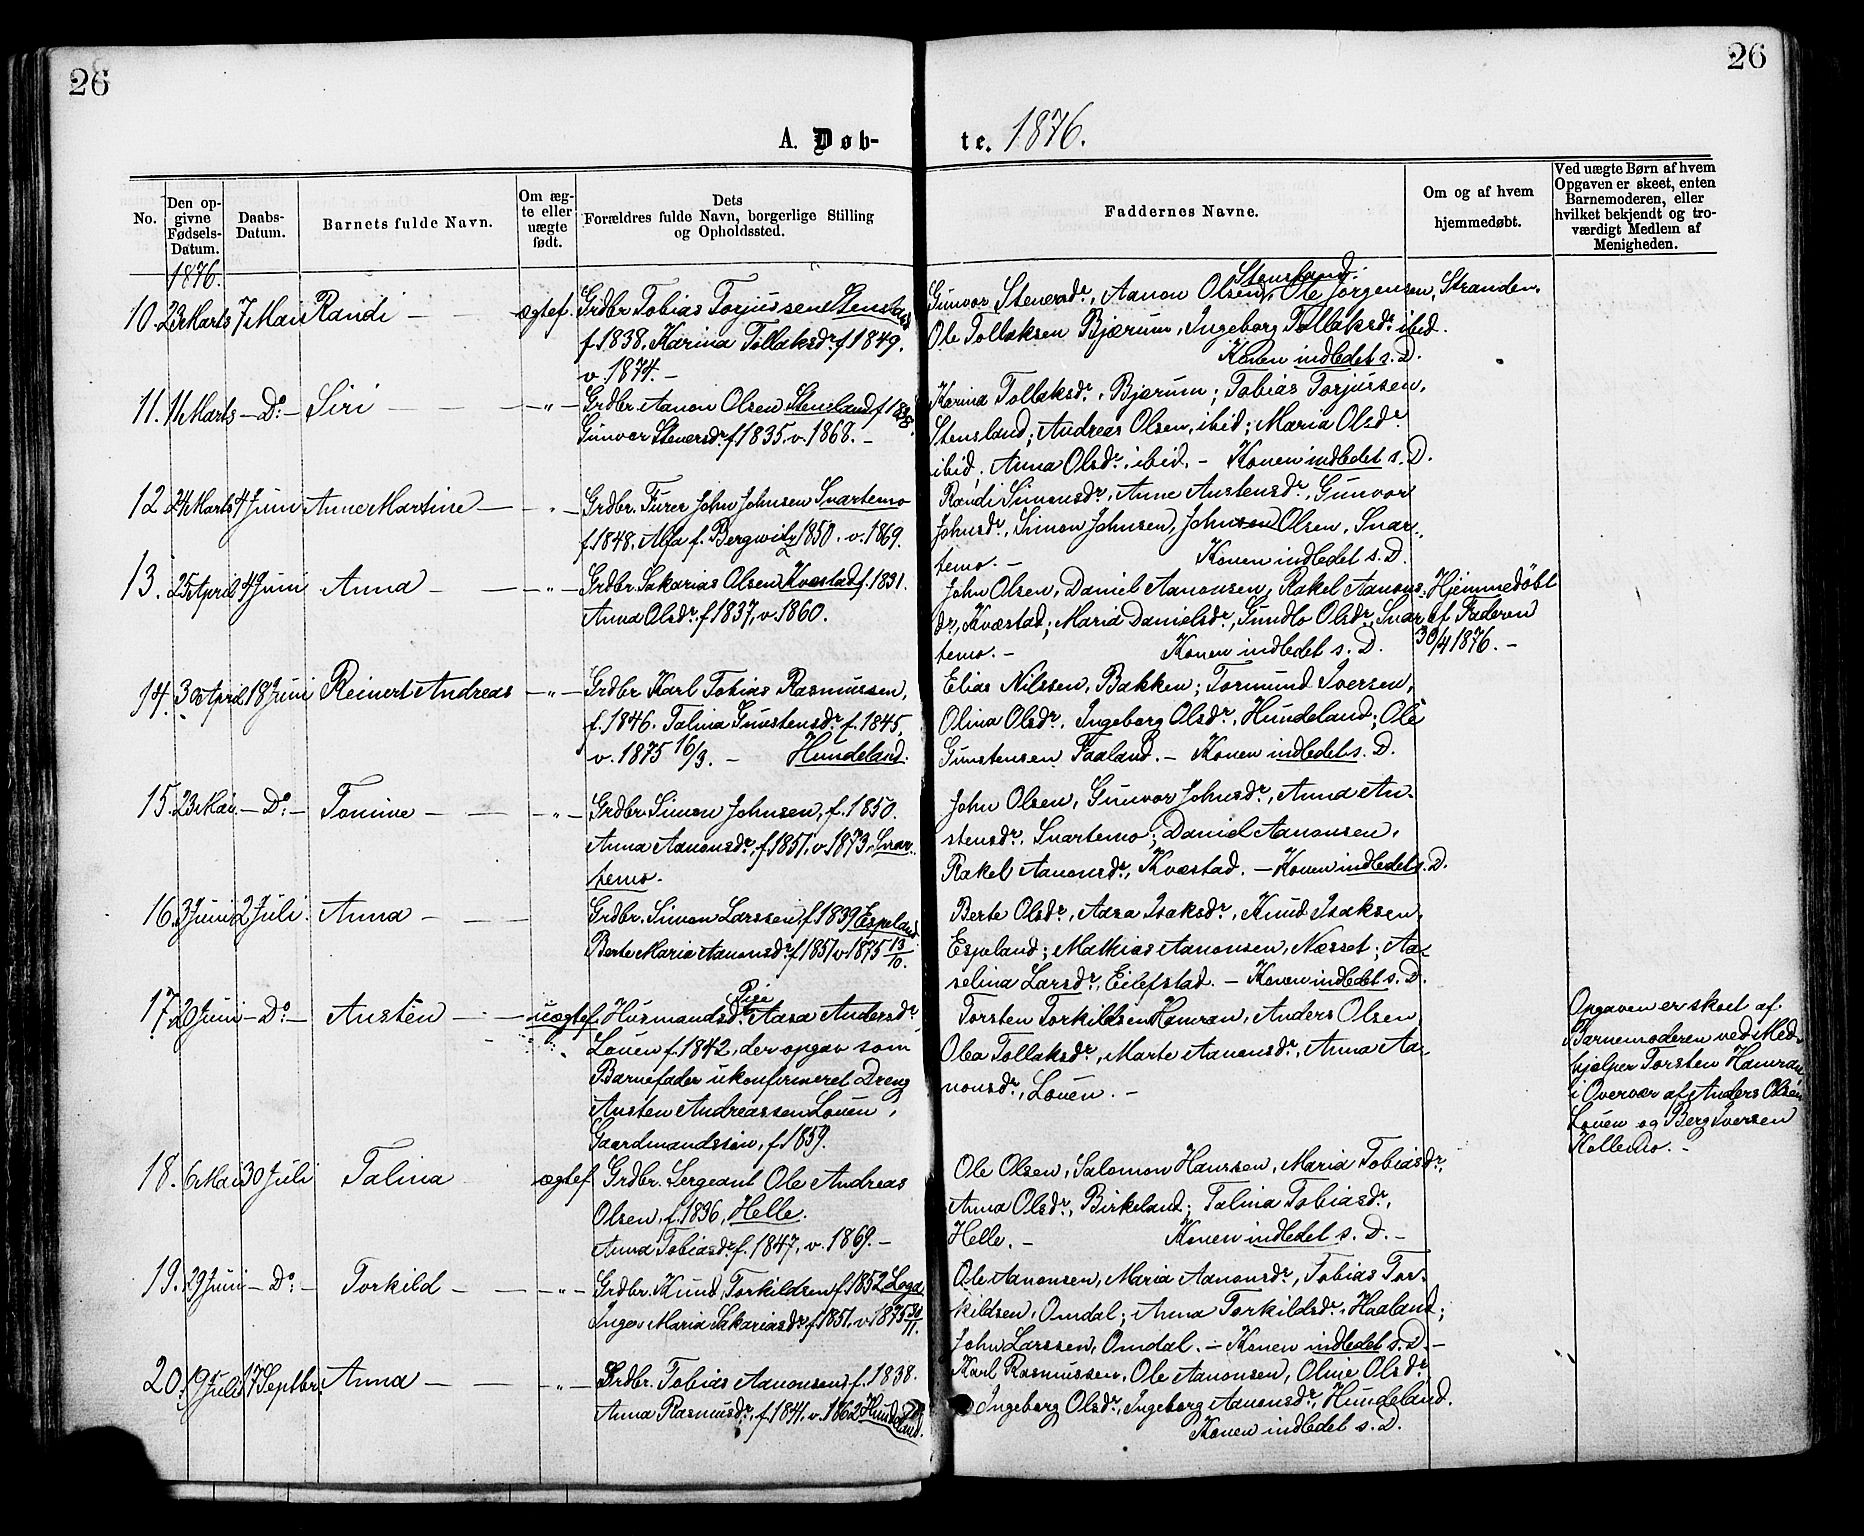 26
26
A. Døb-
te. 1876.
No.
Den op-
givne
Fødsels-
Datum.
Daabs-
Datum.
Barnets fulde Navn.
Om æg-
te eller
uægte
født.
Dets
Forældres fulde Navn, borgerlige Stilling
og Opholdssted.
Faddernes Navne.
Om og af hvem
hjemmedøbt.
Ved uægte Børn af hvem
Opgaven er skeet, enten
Barnemoderen, eller
hvilket bekjendt og tro-
værdigt Medlem af
Menigheden.
1876.
10. 23 Marts 7 Mai Randi — — ægtef. Grdbr. Tobias Torjussen Stensland
f. 1838, Karina Tollaksdr. f. 1849.
v. 1874. —
Stensland.
Gunvor Stenersdr., Aanon Olsen, Ole Jørgensen, Stranden.
Ole Tollaksen Bjærum, Ingeborg Tollaksdr. ibid.
Konen indledet s. D.
11. 11 Marts — Do. — Siri — — — „ — Grdbr. Aanon Olsen Stensland f. 1838.
Gunvor Stenersdr. f. 1835. v. 1868. —
Karina Tollaksdr., Bjærum; Tobias Torjussen,
Stensland; Andreas Olsen, ibid; Maria Olsdr.
ibid. Anna Olsdr. ibid. — Konen indledet s. D.
12 24 Marts 4 Juni Anne Martine — — „ — Grdbr. Furer John Johnsen Snartemo
f. 1848, Alfa f. Bergwitz 1850. v. 1869.
Randi Simonsdr., Anne Austensdr., Gunvor
Johnsdr., Simon Johnsen, Johnson Olsen, Snar-
temo. — Konen indledet s. D.
13. 25 April 4 Juni Anna — — — „ — Grdbr. Sakarias Olsen Kvæstad f. 1831.
Anna Olsdr. f. 1837, v. 1860.
John Olsen, Daniel Aanonsen, Rakel Aanons-
dr., Kvæstad; Maria Danielsdr., Gundlo Olsdr., Snar-
temo. — Konen indledet s. D.
Hjemmedøbt
af Faderen
30/4 1876. —
14. 30 April 18 Juni Reinert Andreas — „ — Grdbr. Karl Tobias Rasmussen,
f. 1846. Talina Gunstensdr. f. 1845,
v. 1875 16/3. — Hundeland.
Elias Nilssen, Bakken; Tormund Iversen,
Olina Olsdr., Ingeborg Olsdr., Hundeland; Ole
Gunstensen Faaland. — Konen indledet s. D.
15. 23 Mai — Do. — Tomine — — — „ — Grdbr. Simon Johnsen, f. 1850.
Anna Aanonsdr., f. 1851, v. 1873, Snar-
temo.
John Olsen, Gunvor Johnsdr., Anna Au-
stensdr., Snartemo; Daniel Aanonsen,
Rakel Aanonsdr., Kvæstad. — Konen indledet s. D.
16. 3 Juni 2 Juli. Anna — — — „ — Grdbr. Simon Larssen f. 1839, Espeland
Berte Maria Aanonsdr. f. 1851 v. 1875 13/10.
Berte Olsdr., Aasa Isaksdr., Knud Isaksen,
Espeland; Mathias Aanonsen, Næsset; Aa-
selina Larsdr., Eilefstad. — Konen indledet s. D.
17. 20 Juni — Do. — Austen — — uægtef. Husmandsdr. Pige Aasa Andersdr.
Louen f. 1842, der opgav som
Barnefader ukonfirmeret Dreng
Austen Andreassen Louen,
Gaardmandssøn, f. 1859.
Torsten Torkildsen Hamran, Anders Olsen,
Olea Tollaksdr., Marte Aanonsdr., Anna Aa-
nonsdr., Louen. —
Opgaven er skeet af
Barnemoderen ved Med-
hjælper Torsten Hamran
i Overvær af Anders Olsen
Louen og Berg Iversen
Kollemo. —
18. 6 Mai 30 Juli Talina ægtef. Grdbr. Sergeant Ole Andreas
Olsen, f. 1836, Helle.
Anna Tobiasdr. f. 1847, v. 1869. —
Ole Olsen, Salomon Hanssen, Maria Tobiasdr.,
Anna Olsdr., Birkeland; Talina Tobiasdr.,
Helle. — Konen indledet s. D. —
19. 29 Juni — Do. — Torkild — — — „ — Grdbr. Knud Torkildsen f. 1852 Loga
Inger Maria Sakariasdr. f. 1851, v. 1875 30/11.
Ole Aanonsen, Maria Aanonsdr., Tobias Tor-
kildsen, Omdal; Anna Torkildsdr., Haaland;
John Larssen, Omdal. — Konen indledet s. D. —
20. 19 Juli 17 Septbr. Anna — — — „ — Grdbr. Tobias Aanonsen f. 1838.
Anna Rasmusdr., f. 1841. v. 1862 Hundeland.
Karl Rasmussen, Ole Aanonsen, Oline Olsdr.
Ingeborg Olsdr., Ingeborg Aanonsdr., Hundeland.
Konen indledet s. D.